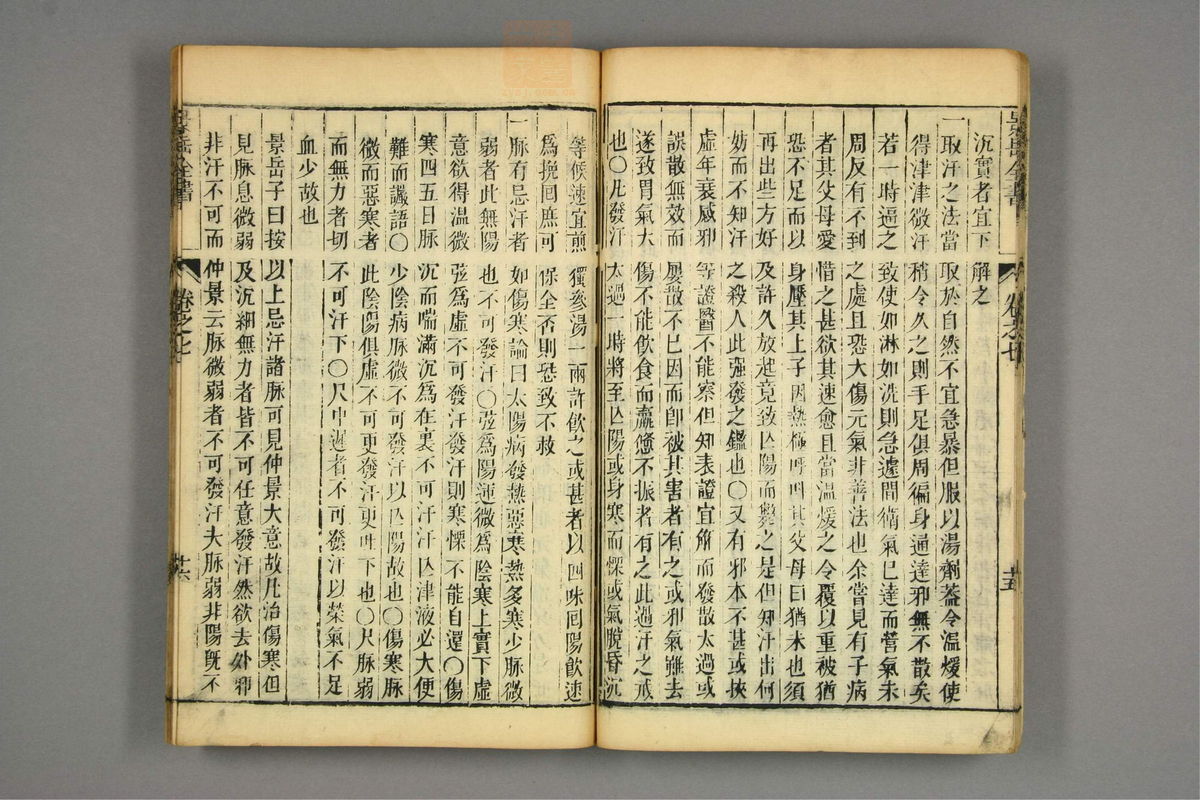 景岳全書 卷之七 廿五
沉實者宜下解之
一取汗之法當取於自然不宜急暴但服以湯劑葢令溫煖使
得津津微汗稍令久之則手足俱周徧身通達邪無不散矣
若一時逼之致使如淋如洗則急遽間衛氣已達而營氣未
周反有不到之處且恐大傷元氣非善法也余嘗見有子病
者其父母愛惜之甚欲其速愈且當溫煖之令覆以重被猶
恐不足而以身壓其上子因熱極呼叫其父母曰猶未也須
再出些方好及許久放起竟致亾陽而斃之是但知汗出何
妨而不知汗之殺人此强發之鑑也〇又有邪本不甚或挾
虛年衰感邪等證醫不能察但知表證宜解而發散太過或
誤散無效而屢散不已因而卽被其害者有之或邪氣雖去
遂致胃氣大傷不能飲食而羸憊不振者有之此過汗之戒
也〇凡發汗太過一時將至亾陽或身寒而慄或氣脫昏沉
等候速宜煎獨參湯一兩許飲之或甚者以四味回陽飲速
爲挽回庶可保全否則恐致不救
一脉有忌汗者如傷寒論曰太陽病發熱惡寒熱多寒少脉微
弱者此無陽也不可發汗〇弦爲陽運微爲陰寒上實下虛
意欲得溫微弦爲虛不可發汗發汗則寒慄不能自還〇傷
寒四五日脉沉而喘滿沉爲在裏不可汗汗亾津液必大便
難而譫語〇少陰病脉微不可發汗以亾陽故也〇傷寒脉
微而惡寒者此陰陽俱虛不可更發汗更吐下也〇尺脉弱
而無力者切不可汗下〇尺中遲者不可發汗以榮氣不足
血少故也
景岳子曰按以上忌汗諸脉可見仲景大意故凡治傷寒但
見脉息微弱及沉細無力者皆不可任意發汗然欲去外邪
非汗不可而仲景云脉微弱者不可發汗夫脉弱非陽旣不
景岳全書 卷之七 廿六